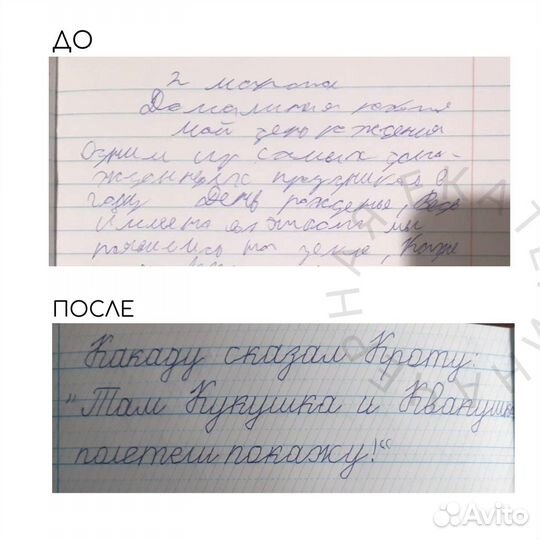 ДО
2 марта
Домашняя работа
Мой день рождения
Одним из самых долго-
жданных праздников в
году День рождение, Ведь
именно в этот мы
появились на земле, Каж
ПОСЛЕ
Какаду сказал Кроту:
"Там Кукушка и Квакушка
полетели покажу!"
Avito